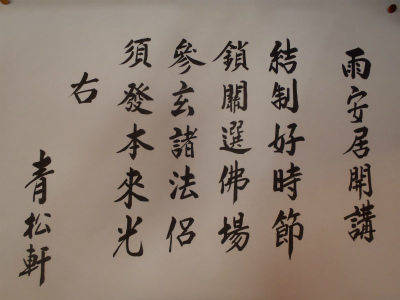 雨安居開講
結制好時節
鎖關選佛場
參玄諸法侶
須發本來光
右
青松軒